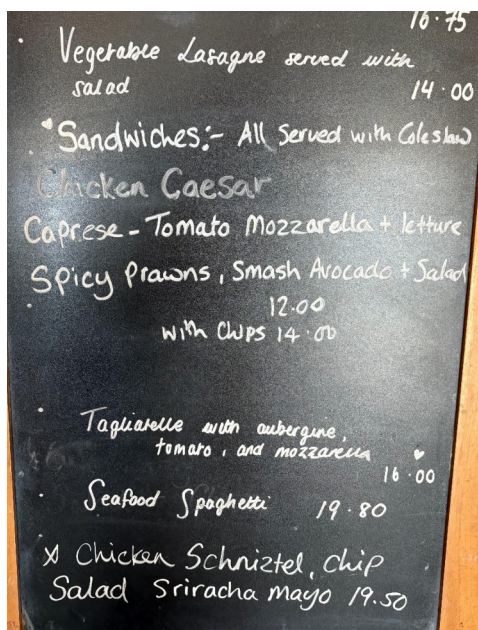 16.75
Vegetable Lasagne served with
salad
14.00
Sandwiches:- All Served with Coleslaw
Chicken Caesar
Caprese - Tomato Mozzarella + letture
Spicy Prawns, Smash Avocado + Salad
12.00
with Chips 14.00
Tagliatelle with aubergine,
tomato, and mozzarella
16.00
Seafood Spaghetti 19.80
Chicken Schniztel, chip
Salad Sriracha mayo 19.50